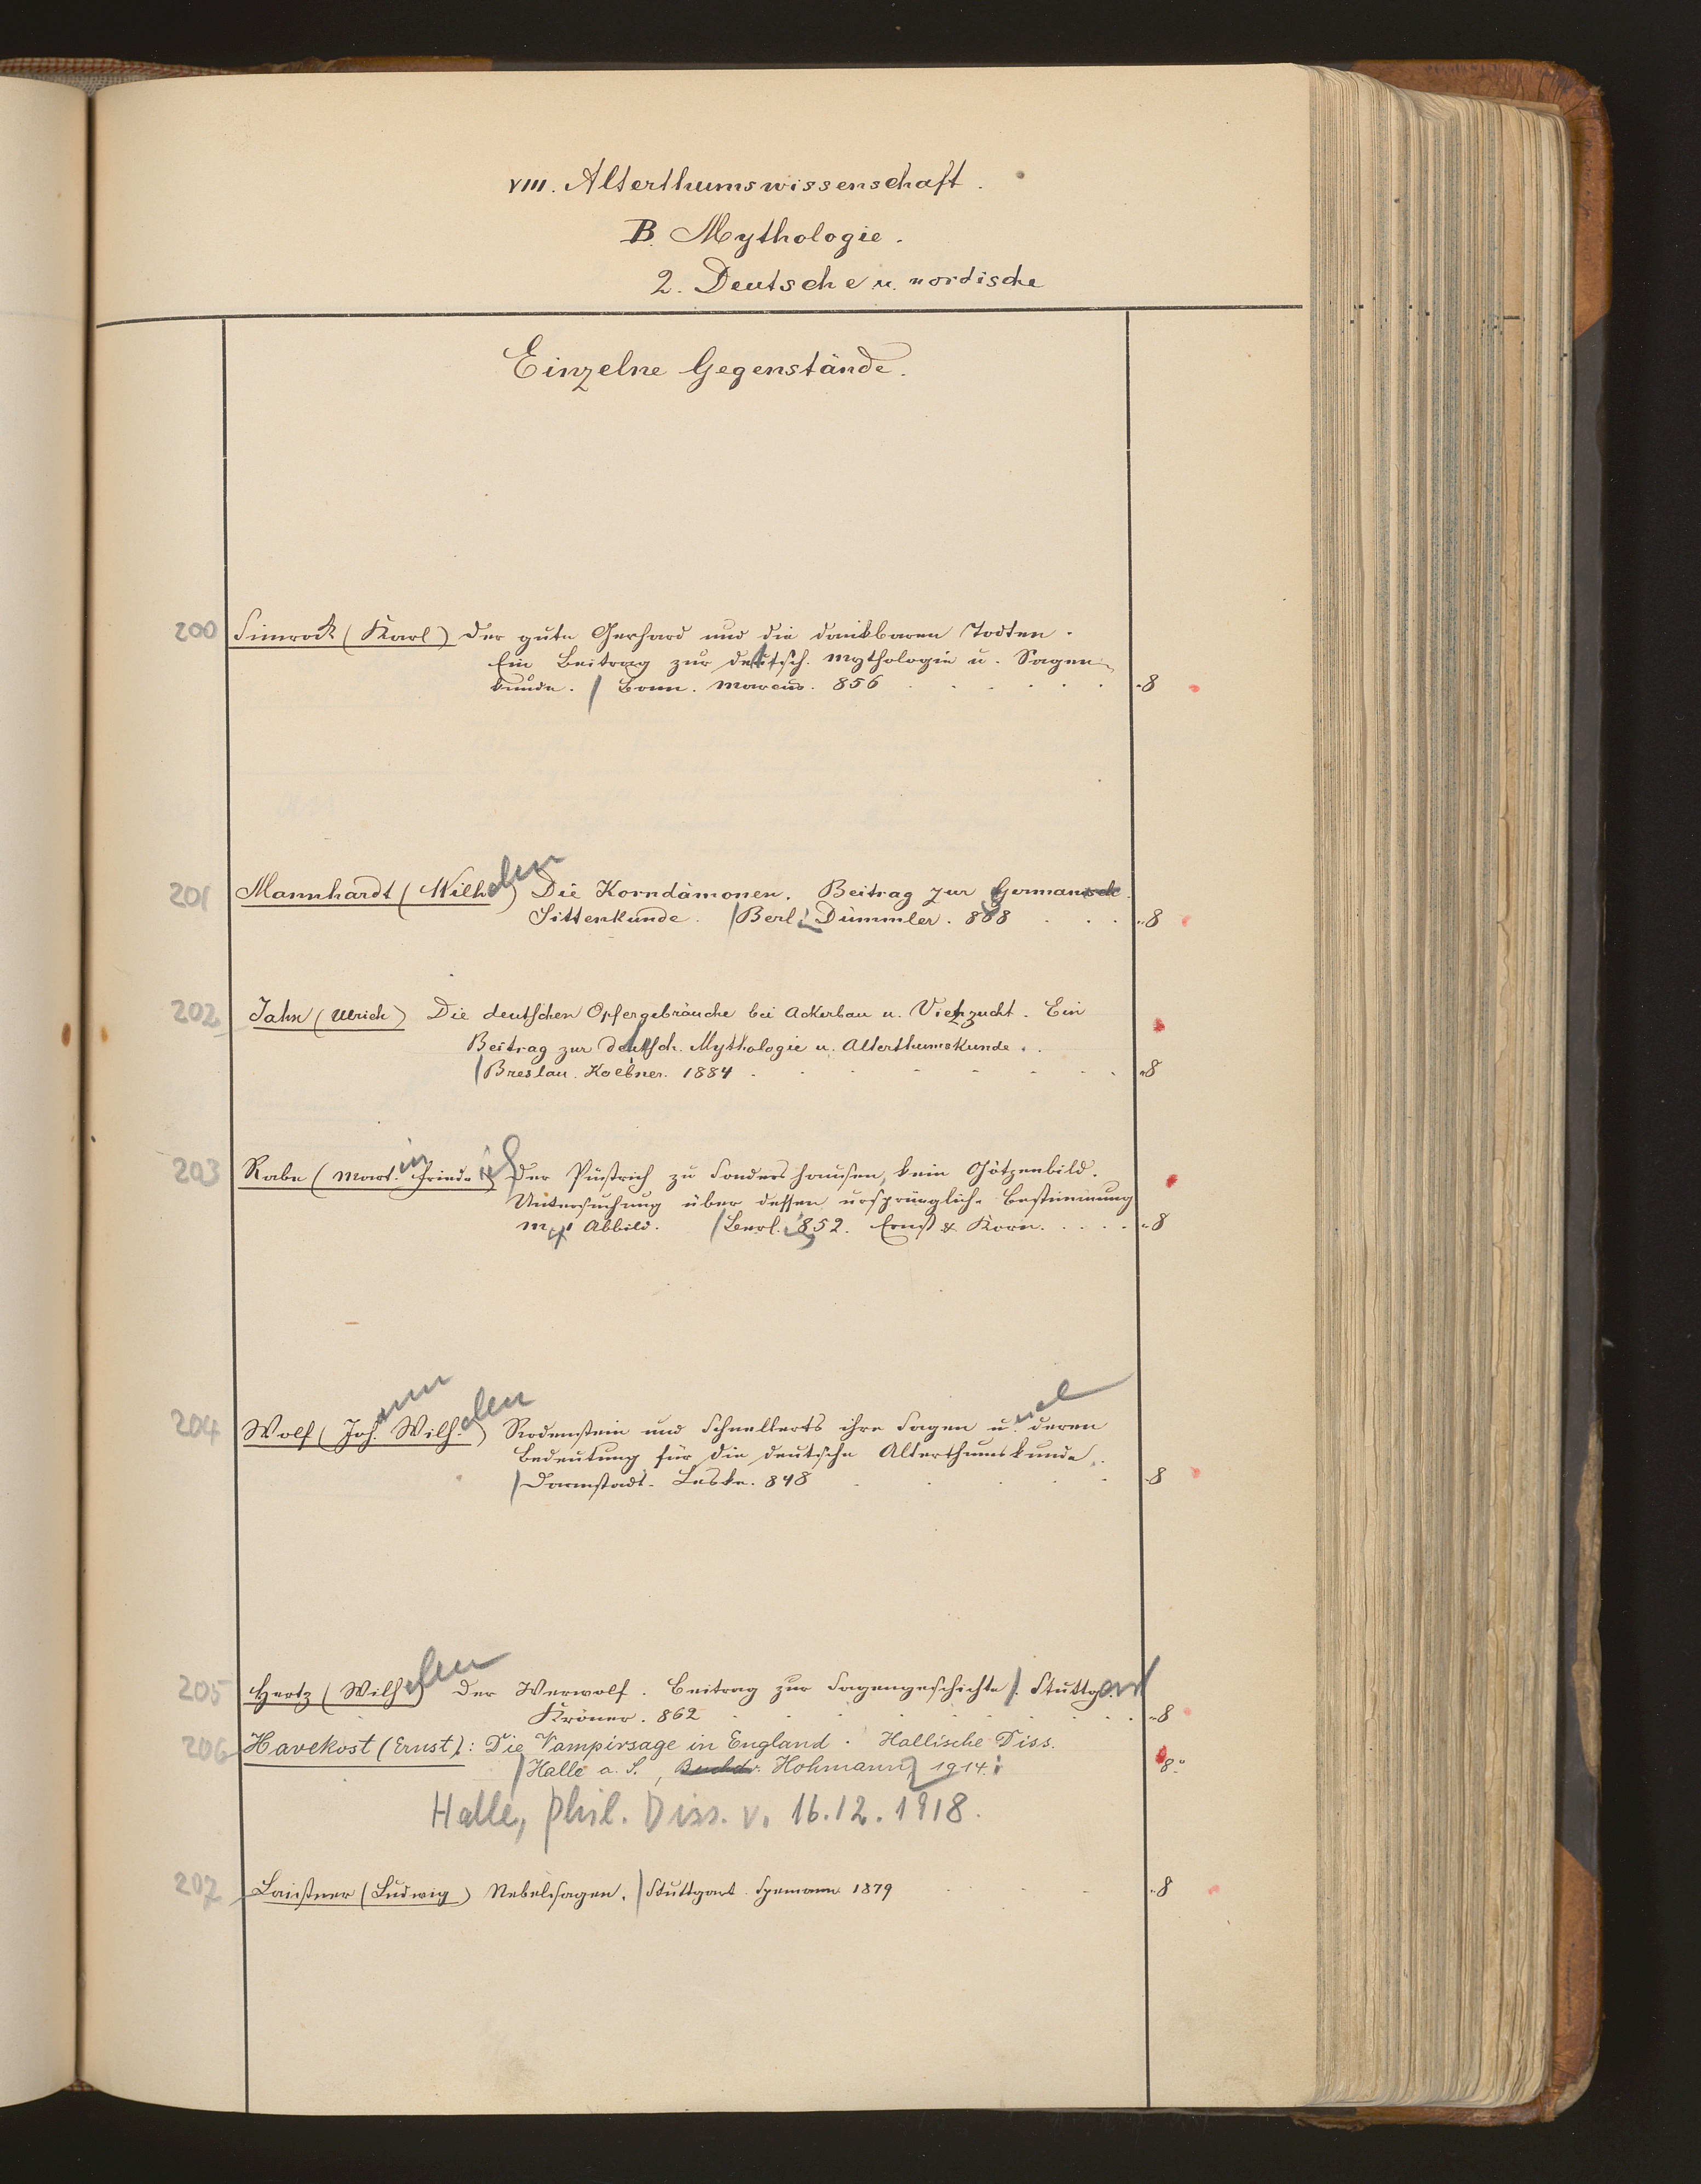 VIII. Alterthumswissenschaft.
B. Mythologie.
2. Deutsche u. nordische
Einzelne Gegenstände.
200 Simrock (Karl) Der gute Gerhard und die dankbaren Todten.
Ein Beitrag zur deutsch. Mythologie u. Sagen-
kunde. / Bonn. Marcus. 856 8
201 Mannhardt (Wilhelm) Die Korndämonen. Beitrag zur German
Sittenkunde. / Berl. Dümmler. 868 8
202 Jahn (Ulrich) Die deutschen Opfergebräuche bei Ackerbau u. Viehzucht. Ein
Beitrag zur deutsch. Mythologie u. Alterthumskunde.
/ Breslau. Koebner. 1884 8
203 Rabe (Martin Friedrich) Der Püstrich zu Sondershausen, kein Götzenbild.
Untersuchung über dessen ursprüngliche Bestimmung
m. 1 Abbild. / Berl. 852. Ernst & Korn. 8
204 Wolf (Johann Wilhelm) Rodenstein und Schnellerts ihre Sagen und deren
Bedeutung für die deutsche Alterthumskunde.
/ Darmstadt. Leske. 848 8
205 Hertz (Wilhelm) Der Werwolf. Beitrag zur Sagengeschichte /. Stuttgart
Kröner. 862 8
206 Havekost (Ernst): Die Vampirsage in England. Hallische Diss.
/ Halle a. S., Buchdr. Hohmann, 1914. 8°
Halle, phil. Diss. v. 16.12.1918.
207 Laistner (Ludwig) Nebelsagen. / Stuttgart. Spemann 1879 8